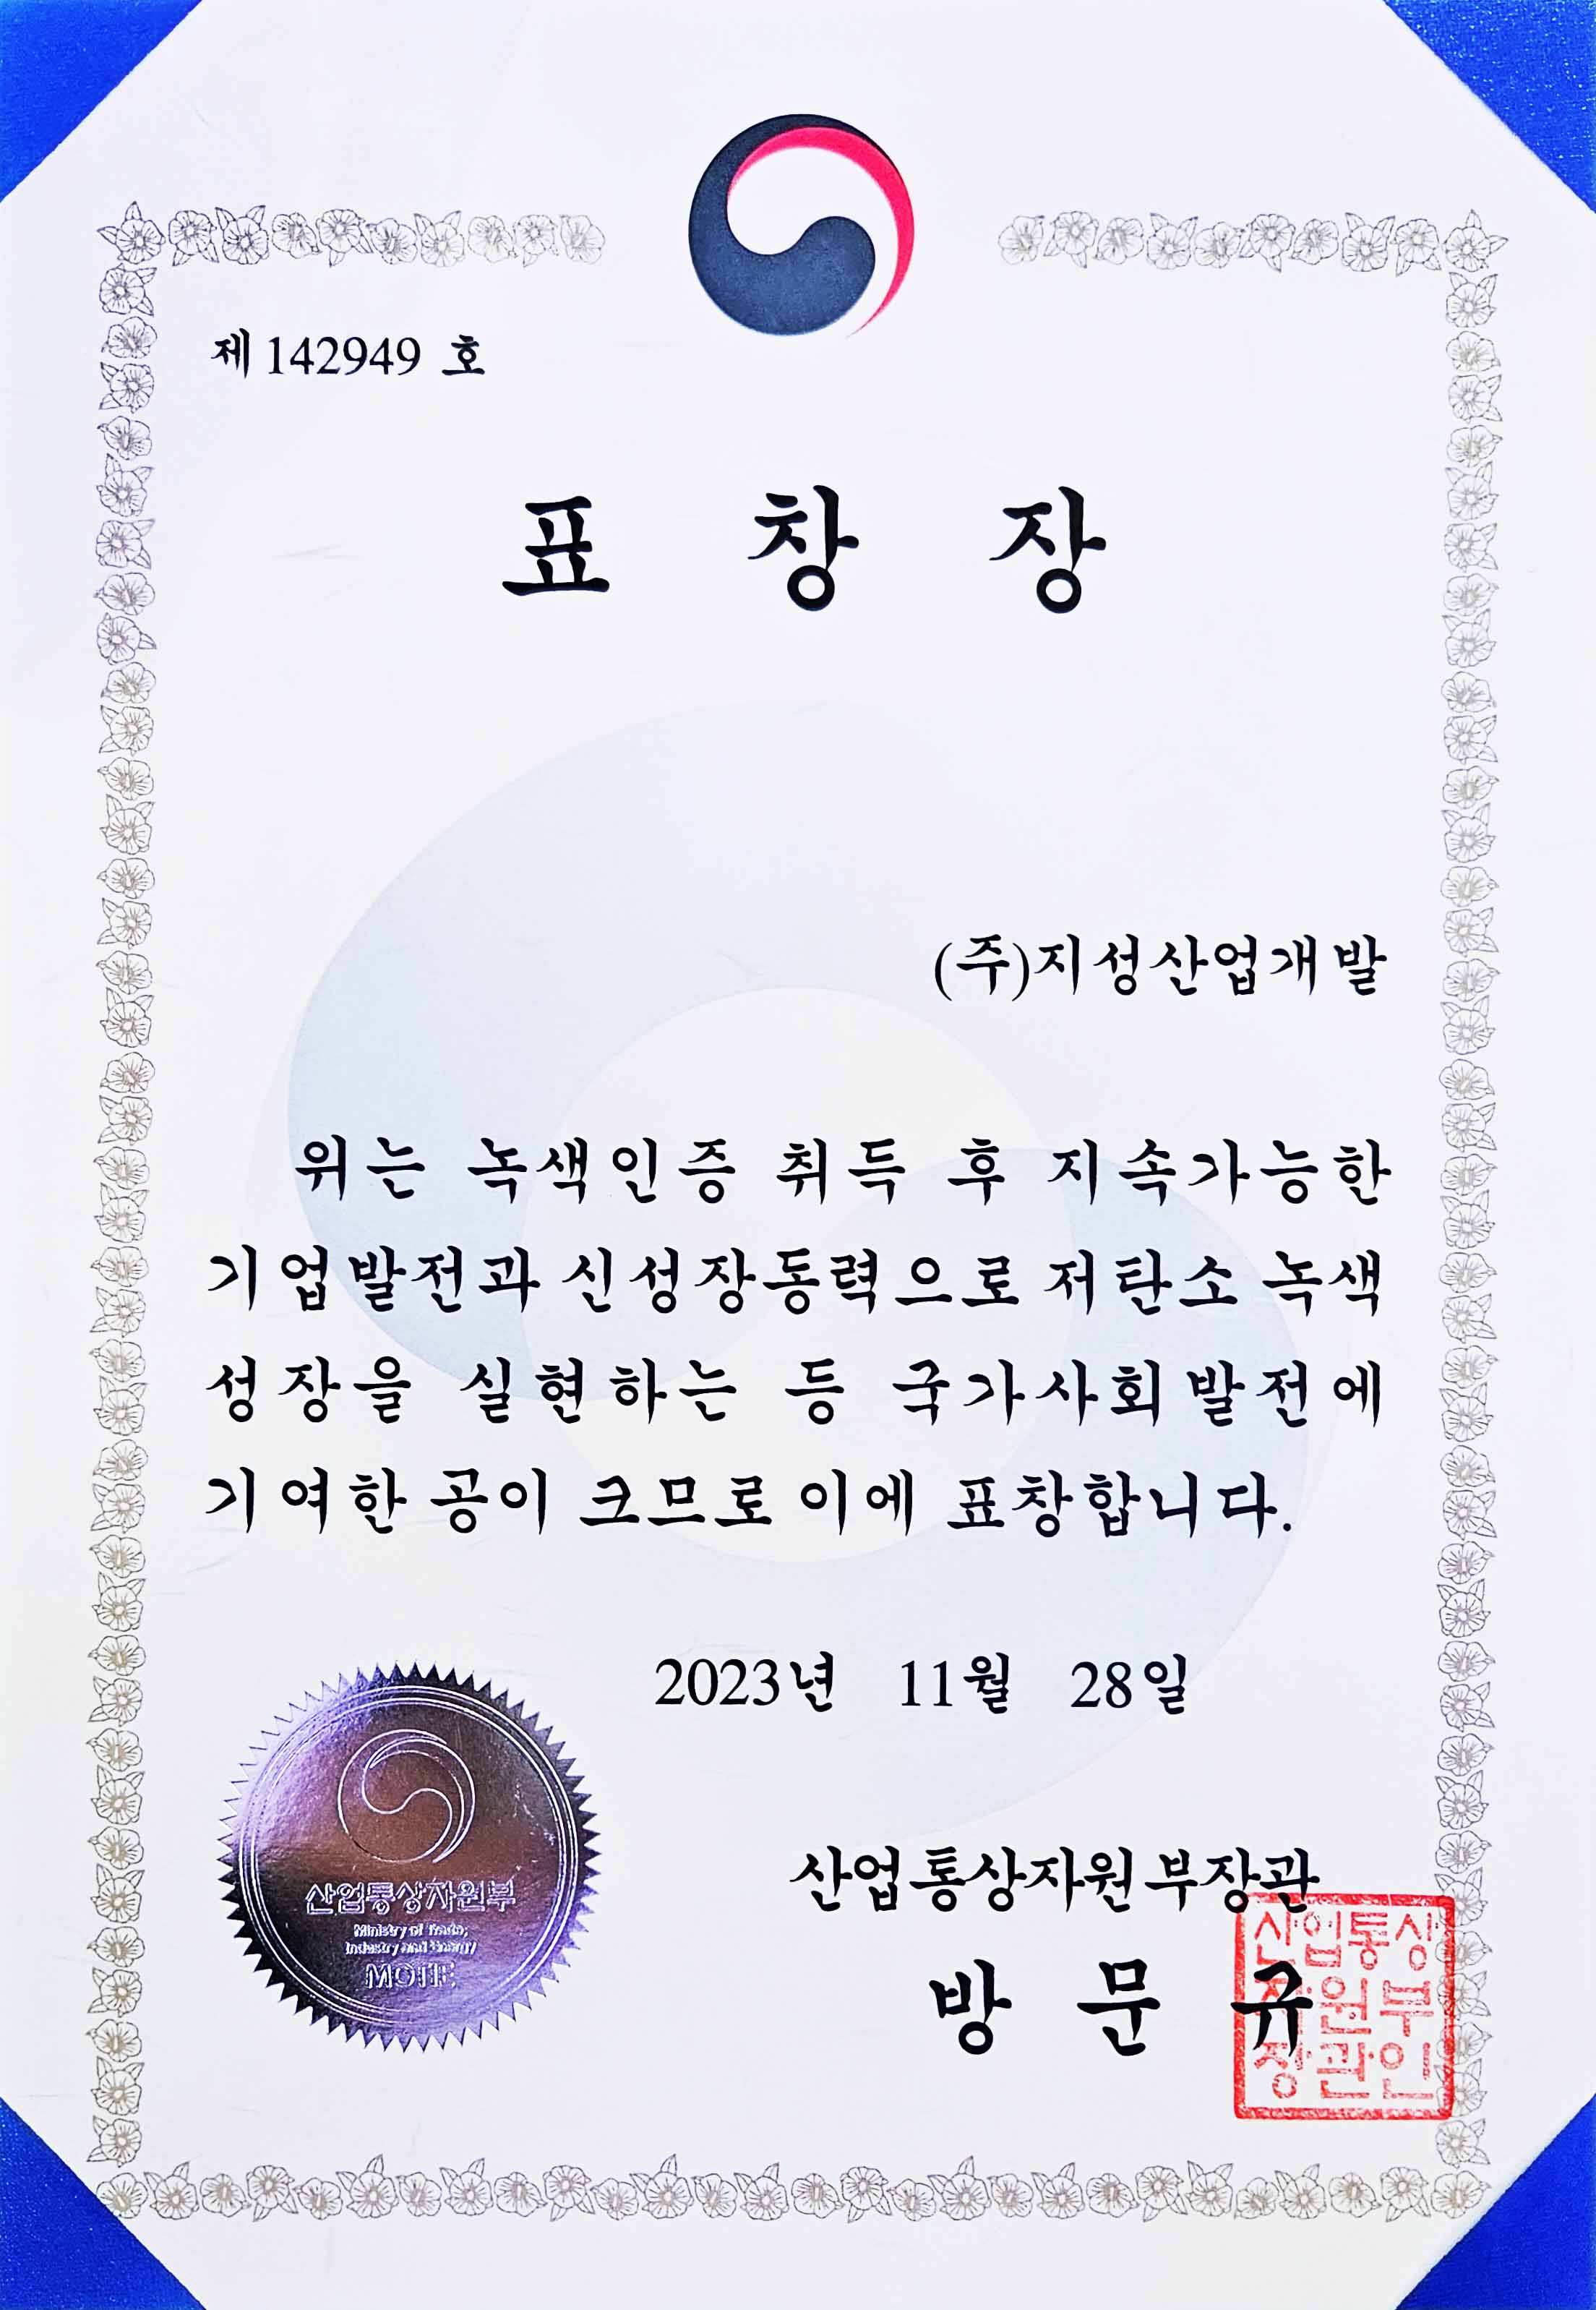 제 142949 호
표 창 장
(주)지성산업개발
위는 녹색인증 취득 후 지속가능한
기업발전과 신성장동력으로 저탄소 녹색
성장을 실현하는 등 국가사회발전에
기여한 공이 크므로 이에 표창합니다.
2023년 11월 28일
산업통상자원부
Ministry of Trade,
Industry and Energy
MOTIE
산업통상자원부장관
방 문 규
산업통상
자원부
장관인